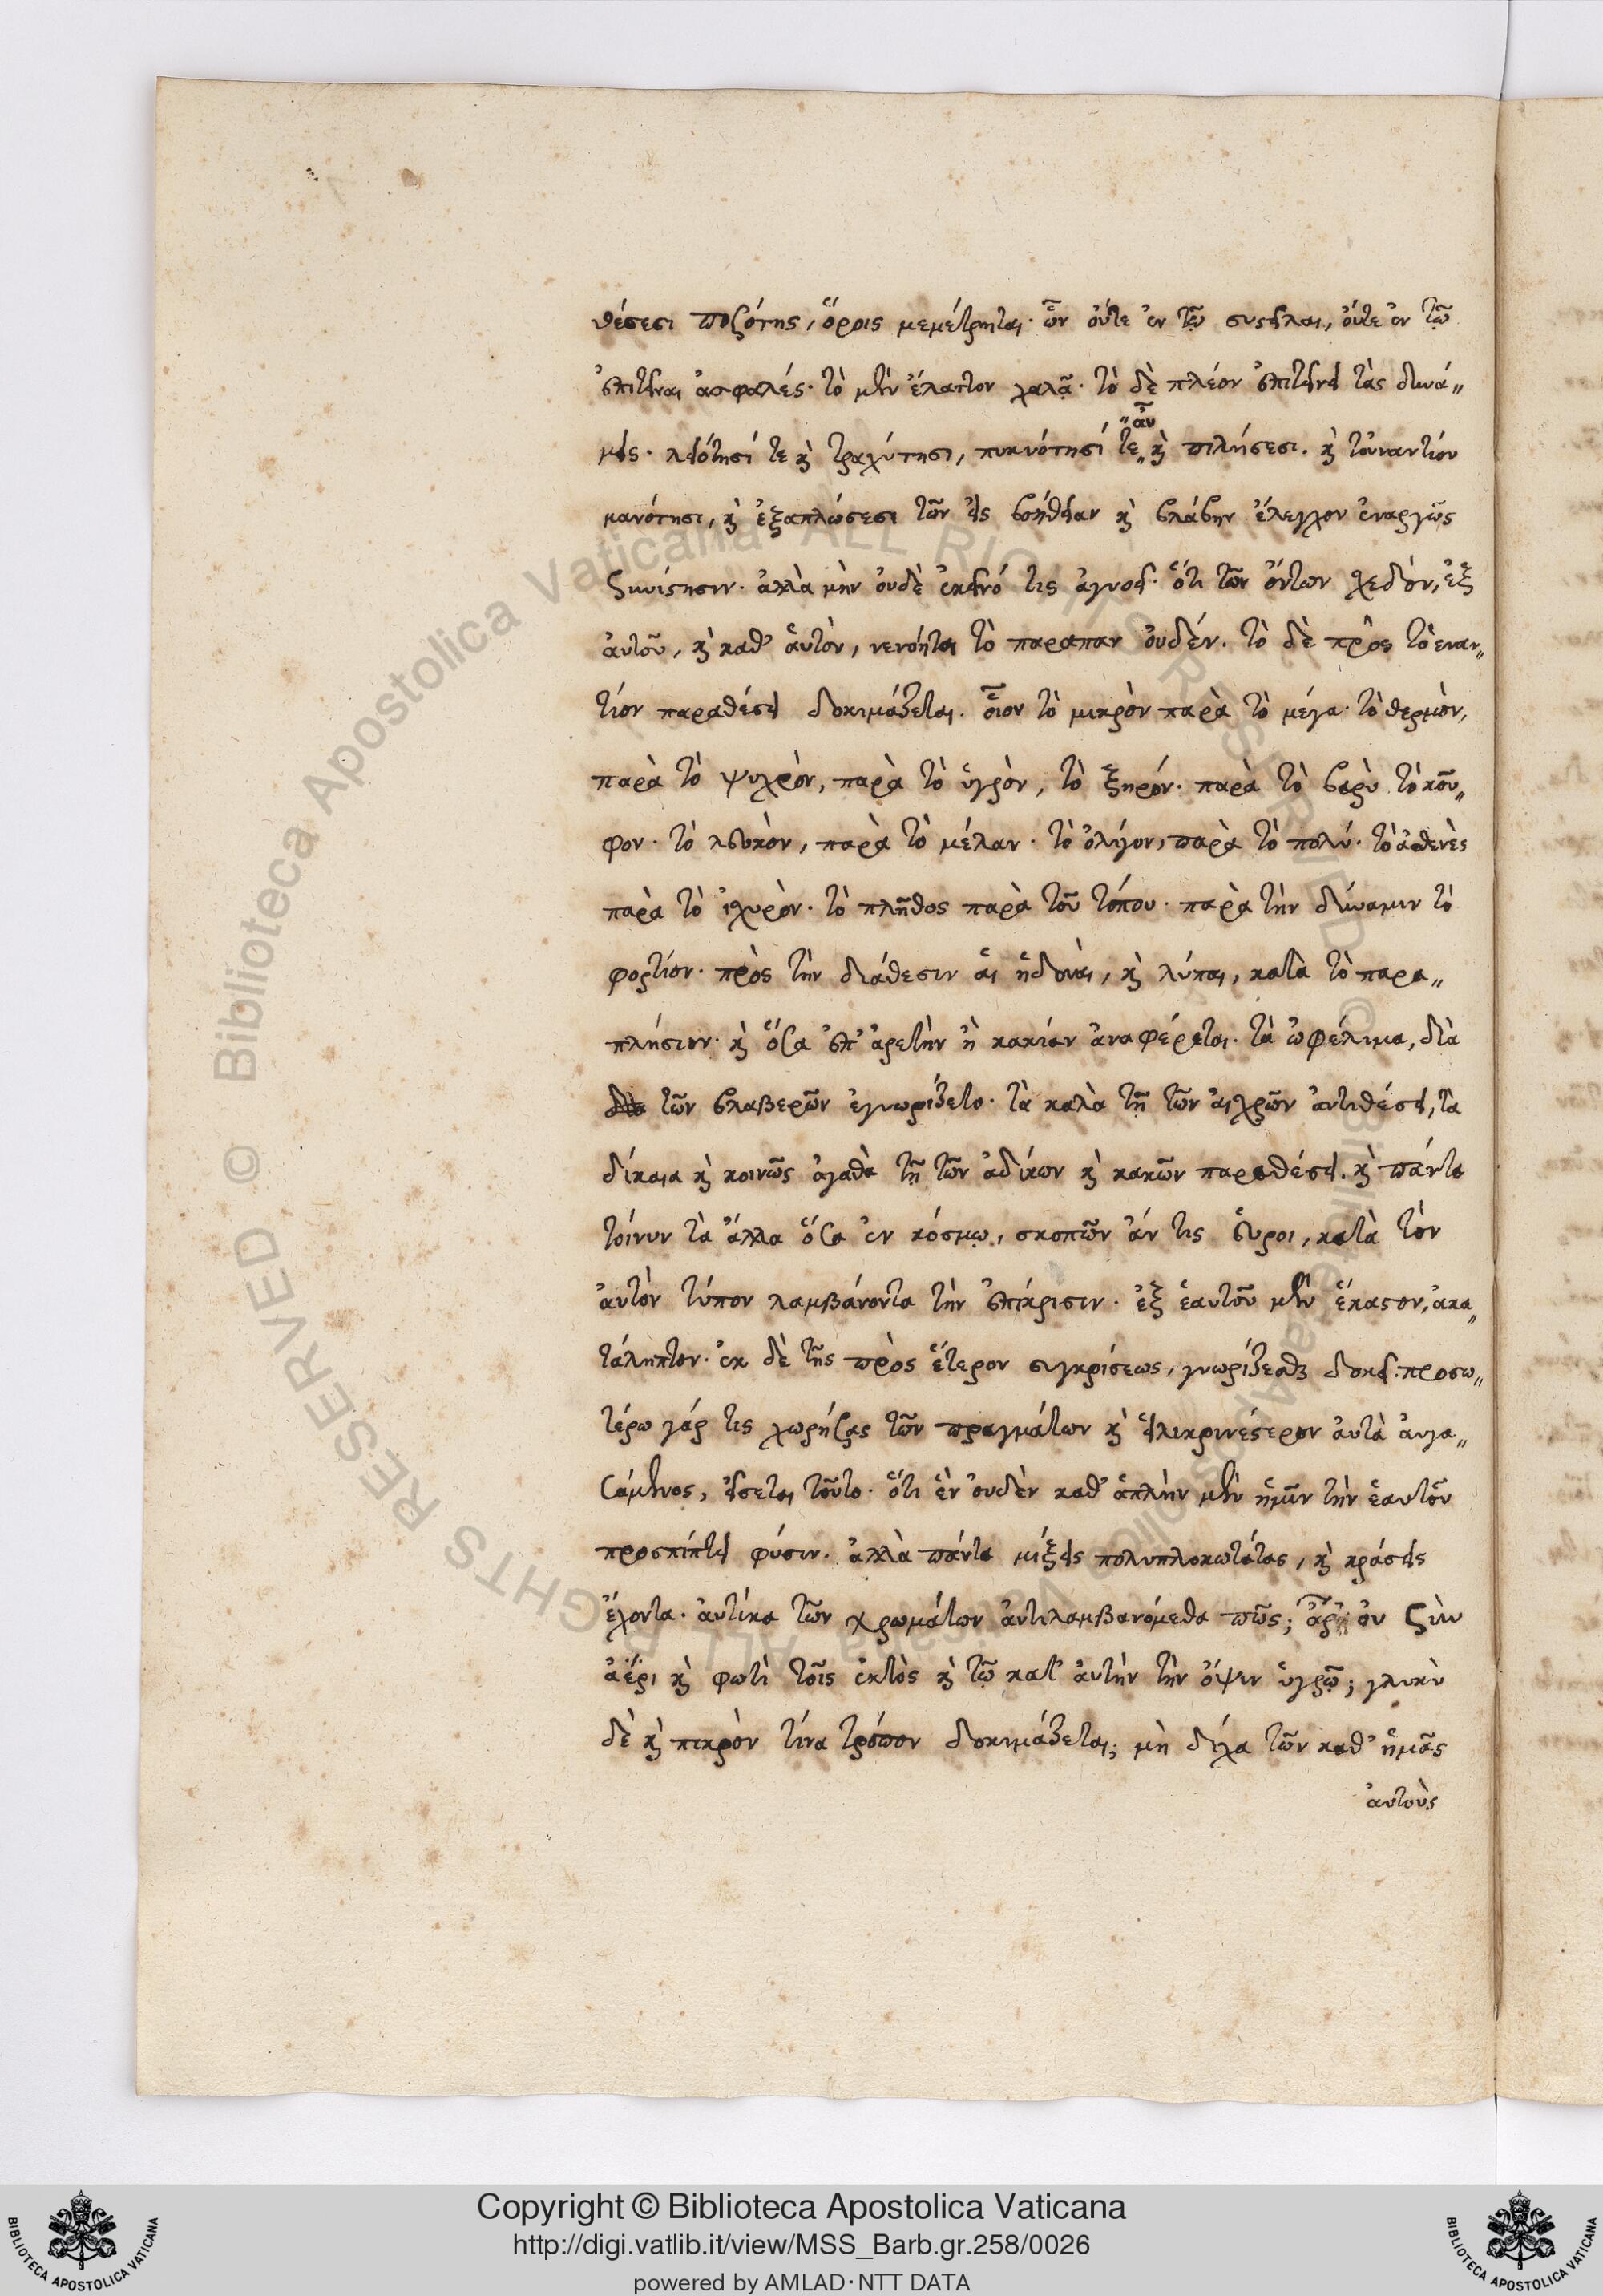 θέσεσι ποσότης, ὅροις μεμέτρηται· ὧν οὔτε ἐν τῷ συστεῖλαι, οὔτε ἐν τῷ
ἐπιτεῖναι ἀσφαλές· τὸ μὲν ἔλαττον χαλᾷ· τὸ δὲ πλέον ἐπιτείνει τὰς δυνά„
„ἂν
μεις· λειότησί τε καὶ τραχύτησι, πυκνότησί τε„ καὶ πιλήσεσι. καὶ τοὐναντίον
μανότησι, καὶ ἐξαπλώσεσι τῶν εἰς βοήθειαν καὶ βλάβην ἔλεγχον ἐναργῶς
συνίστησιν· ἀλλὰ μὴν οὐδὲ ἐκεῖνό τις ἀγνοεῖ· ὅτι τῶν ὄντων σχεδόν, ἐξ
αὐτοῦ, καὶ καθ' αὑτὸν, νενόηται τὸ παραπαν οὐδέν. τὸ δὲ πρὸς τὸ εναν„
τίον παραθέσει δοκιμάζεται. οἷον τὸ μικρὸν παρὰ τὸ μέγα· τὸ θερμὸν,
παρὰ τὸ ψυχρὸν, παρὰ τὸ ὑγρὸν, τὸ ξηρόν. παρὰ τὸ βαρὺ τὸ κοῦ„
φον· τὸ λευκὸν, παρὰ τὸ μέλαν· τὸ ὀλίγον, παρὰ τὸ πολύ· τὸ ἀσθενὲς
παρὰ τὸ ἰσχυρὸν· τὸ πλῆθος παρὰ τοῦ τόπου· παρὰ τὴν δύναμιν τὸ
φορτίον· πρὸς τὴν διάθεσιν αἱ ἡδοναὶ, καὶ λύπαι, κατὰ τὸ παρα„
πλήσιον· καὶ ὅσα ἐπ' ἀρετὴν ἢ κακίαν ἀναφέρεται. τὰ ὠφέλιμα, διὰ
τῶν βλαβερῶν ἐγνωρίζετο· τὰ καλὰ τῇ τῶν αἰσχρῶν ἀντιθέσει, τὰ
δίκαια καὶ κοινῶς ἀγαθὰ τῇ τῶν ἀδίκων καὶ κακῶν παραθέσει. καὶ πάντα
τοίνυν τὰ ἄλλα ὅσα ἐν κόσμῳ, σκοπῶν ἄν τις εὕροι, κατὰ τὸν
αὐτὸν τύπον λαμβάνοντα τὴν ἐπίκρισιν· ἐξ ἑαυτοῦ μὲν ἕκαστον, ἀκα„
τάληπτον· ἐκ δὲ τῆς πρὸς ἕτερον συγκρίσεως, γνωρίζεσθαι δοκεῖ. προσω„
τέρω γάρ τις χωρήσας τῶν πραγμάτων καὶ εἱλικρινέστερον αὐτὰ αὐγα„
σάμενος, εἴσεται τοῦτο· ὅτι ἓν οὐδὲν καθ' ἁπλὴν μὲν ἡμῖν τὴν ἑαυτοῦ
προσπίπτει φύσιν· ἀλλὰ πάντα μίξεις πολυπλοκωτάτας, καὶ κράσεις
ἔχοντα· αὐτίκα τῶν χρωμάτων ἀντιλαμβανόμεθα πῶς; ἆρ' οὐ σὺν
ἀέρι καὶ φωτὶ τοῖς ἐκτὸς καὶ τῷ κατ' αὐτὴν τὴν ὄψιν ὑγρῷ; γλυκὺ
δὲ καὶ πικρὸν τίνα τρόπον δοκιμάζεται; μὴ δίχα τῶν καθ' ἡμᾶς
αὐτοὺς
Copyright © Biblioteca Apostolica Vaticana
http://digi.vatlib.it/view/MSS_Barb.gr.258/0026
powered by AMLAD·NTT DATA
BIBLIOTECA APOSTOLICA VATICANA
BIBLIOTECA APOSTOLICA VATICANA
© Biblioteca Apostolica Vaticana ALL RIGHTS RESERVED